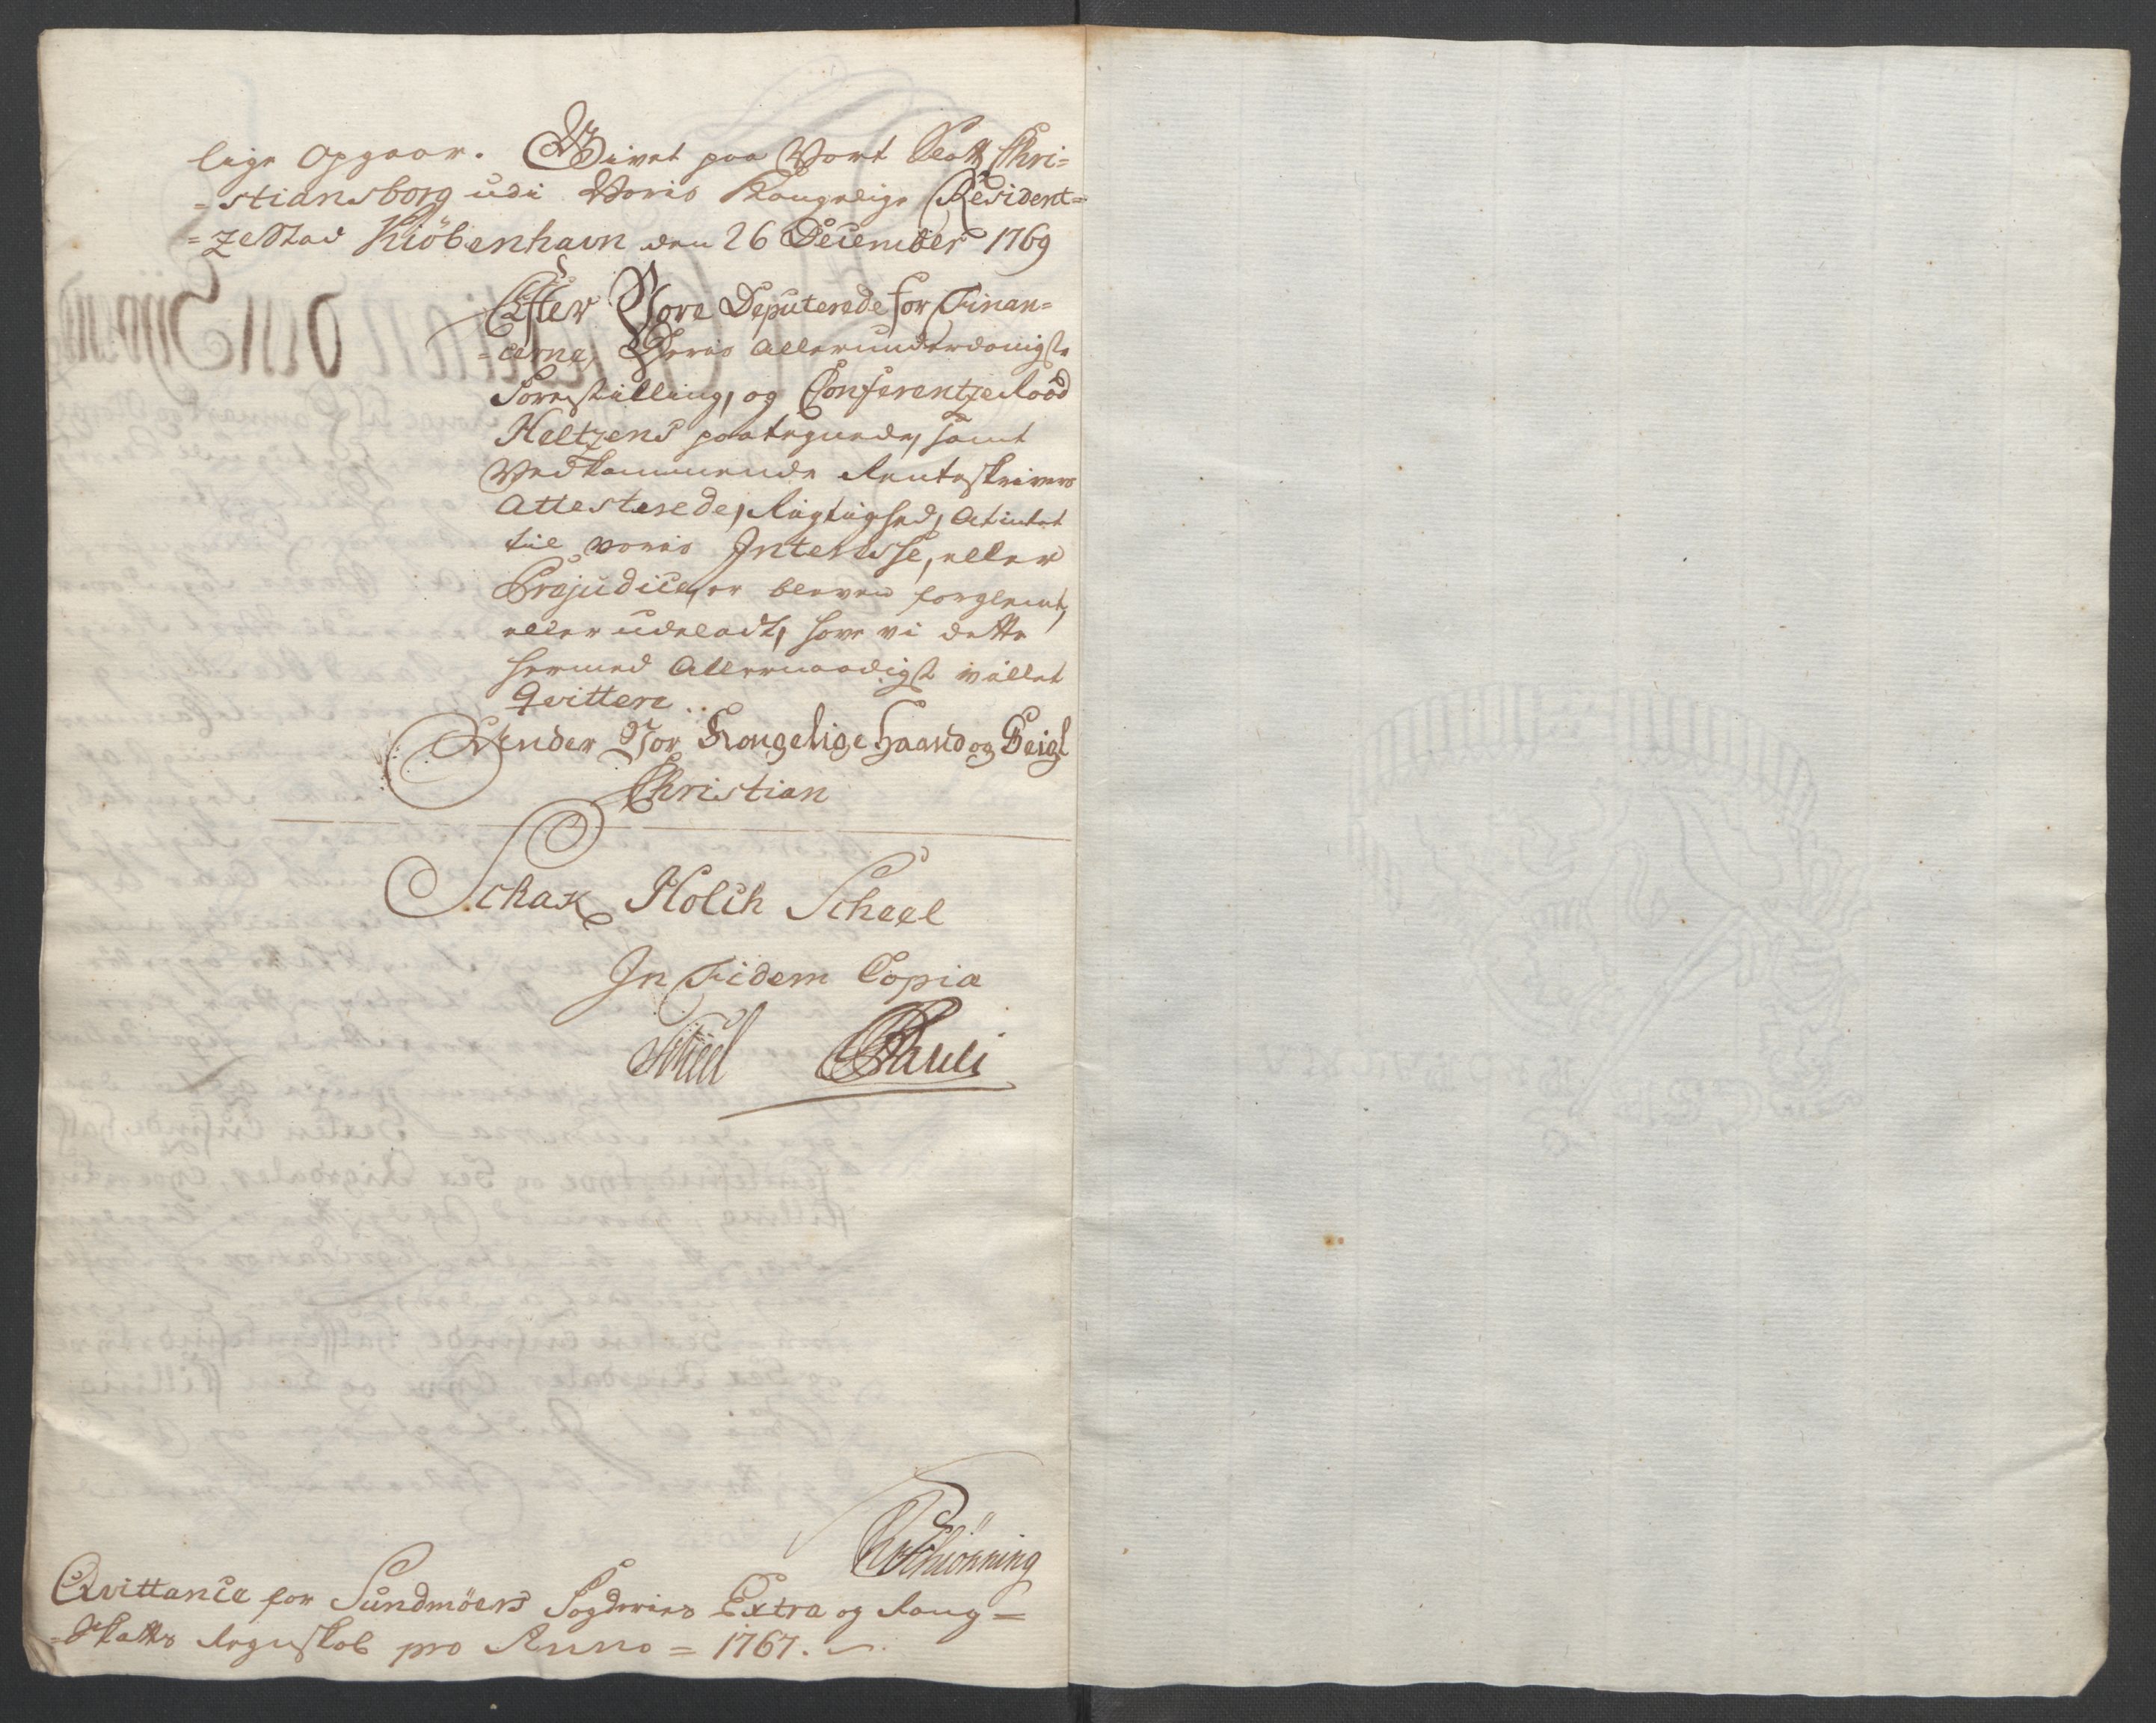 lige Opgaar. Givet paa Vort Slott Chri=
=stiansborg udi Voris Kongelige Resident=
=zeStad Kiöbenhavn den 26 December 1769
Efter Vore Deputerede for Finan=
=cerne, Deres Allerunderdanigste
Forestilling, og Conferentze Raad
Heltzens paategnede, samt
Vedkommende Renteskrivers
Attesterede, Rigtighed, At intet
til voris Interesse, eller
Præjudice, er bleven forglemt,
eller udeladt, have vi dette
hermed Allernaadigst villet
Qvittere..
Under Vor Kongelige Haand og Seigl
Christian
Schak Holch Scheel
In Fidem Copia
Scheel Pauli
Schiönning
Qvittance for Sundmöers Fogderies Extra og Rang=
=Skatts Regnskab pro Anno = 1767.